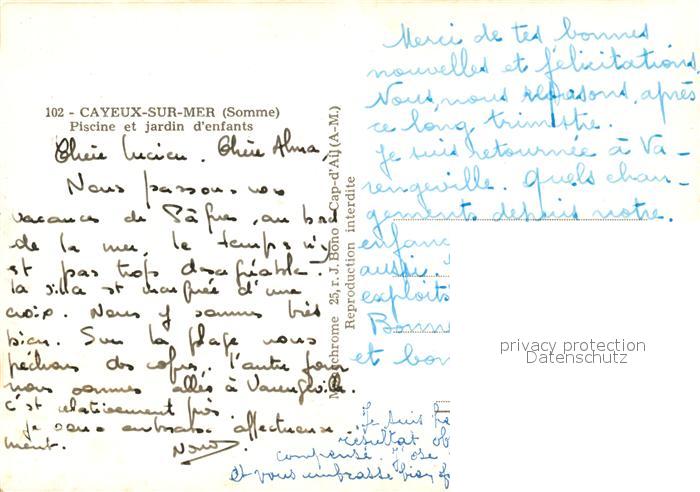 102 - CAYEUX-SUR-MER (Somme)
Piscine et jardin d'enfants
Chère Lucien, Chère Alma,
Nous passons nos
vacances de Pâques au bord
de la mer, le temps n'y
est pas trop désagréable.
la villa est marquée d'une
croix. Nous y sommes très
bien. Sur la plage nous
pêchons des coques, l'autre jour
nous sommes allés à Varengeville.
c'est relativement près.
je vous embrasse affectueuse-
ment.
Merci de tes bonnes
nouvelles et félicitations.
Nous nous reposons, après
ce long trimestre.
Je suis retournée à Va-
rengeville. Quels chan-
gements depuis notre
enfanc
aussi.
exploits
Bonn
et bon
Je suis
résultat ob
compensé. J'ose
et vous embrasse bien
Monochrome 25, r. J. Bono - Cap-d'Ail (A-M.)
Reproduction interdite
privacy protection
Datenschutz